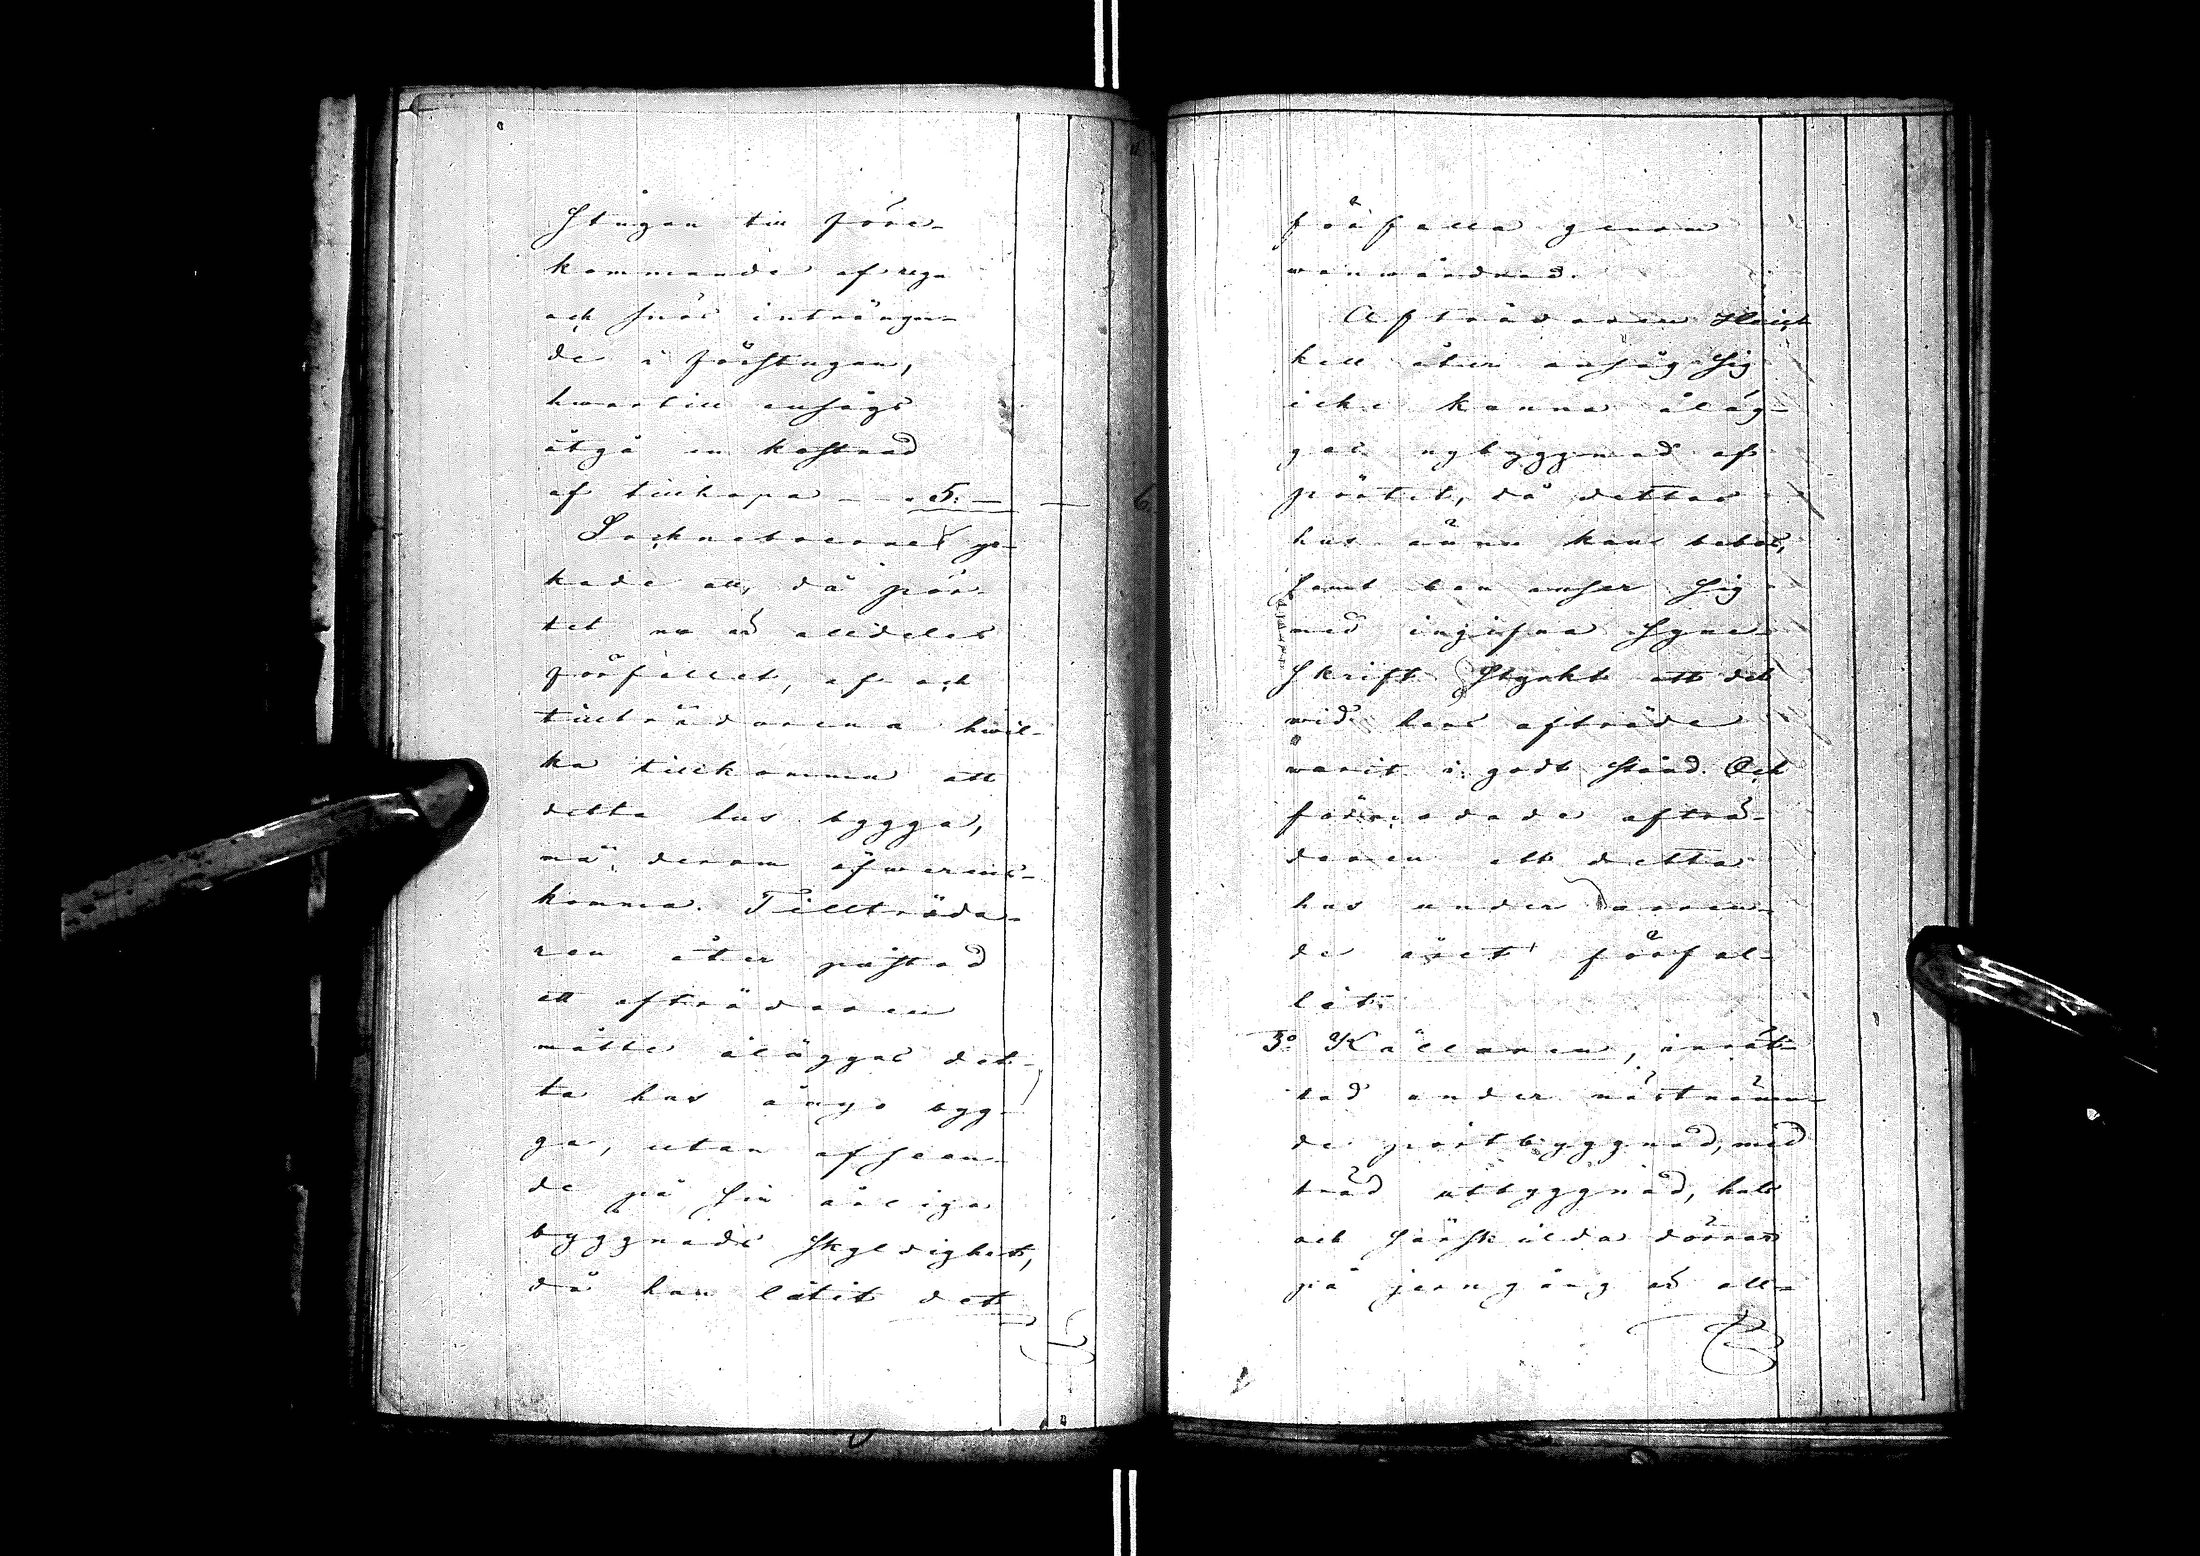 Stugan till före-
kommande af regn
och snös inträngan-
de i förstugan,
hwartill ansågs
åtgå en kostnad
af tillhopa — — 5. — —
Sockneboerne yr-
kade att, då pör-
tet nu är alldeles
förfallet, af och
tillträdarena hwil-
ka tillkommer att
detta hus bygga,
må derom öfwerens-
komma. Tillträda-
ren åter påstod
att afträdaren
måtte åläggas det-
ta hus å nyo byg-
ga, utan afseen-
de på sin årliga
byggnads skyldighet,
då han låtit det
förfalla genom
wanwårdnad.
Afträdaren
kell åter ansåg sig
icke kunna åläg-
gas nybyggnad af
pörtet, då dettas
hus ännu kan bebos,
samt han anser sig
med ingifna Syne-
skrift styrkt att det
wid hans afträde
warit i godt stånd. Och
förmodade afträ-
daren att detta
hus under arren-
de året förfal-
lit.
3o Källaren, inrät-
tad under nästnämn-
de pörtbyggnad, med
träd utbyggnad, half
och särskilda dörrar
på jerngång är all-